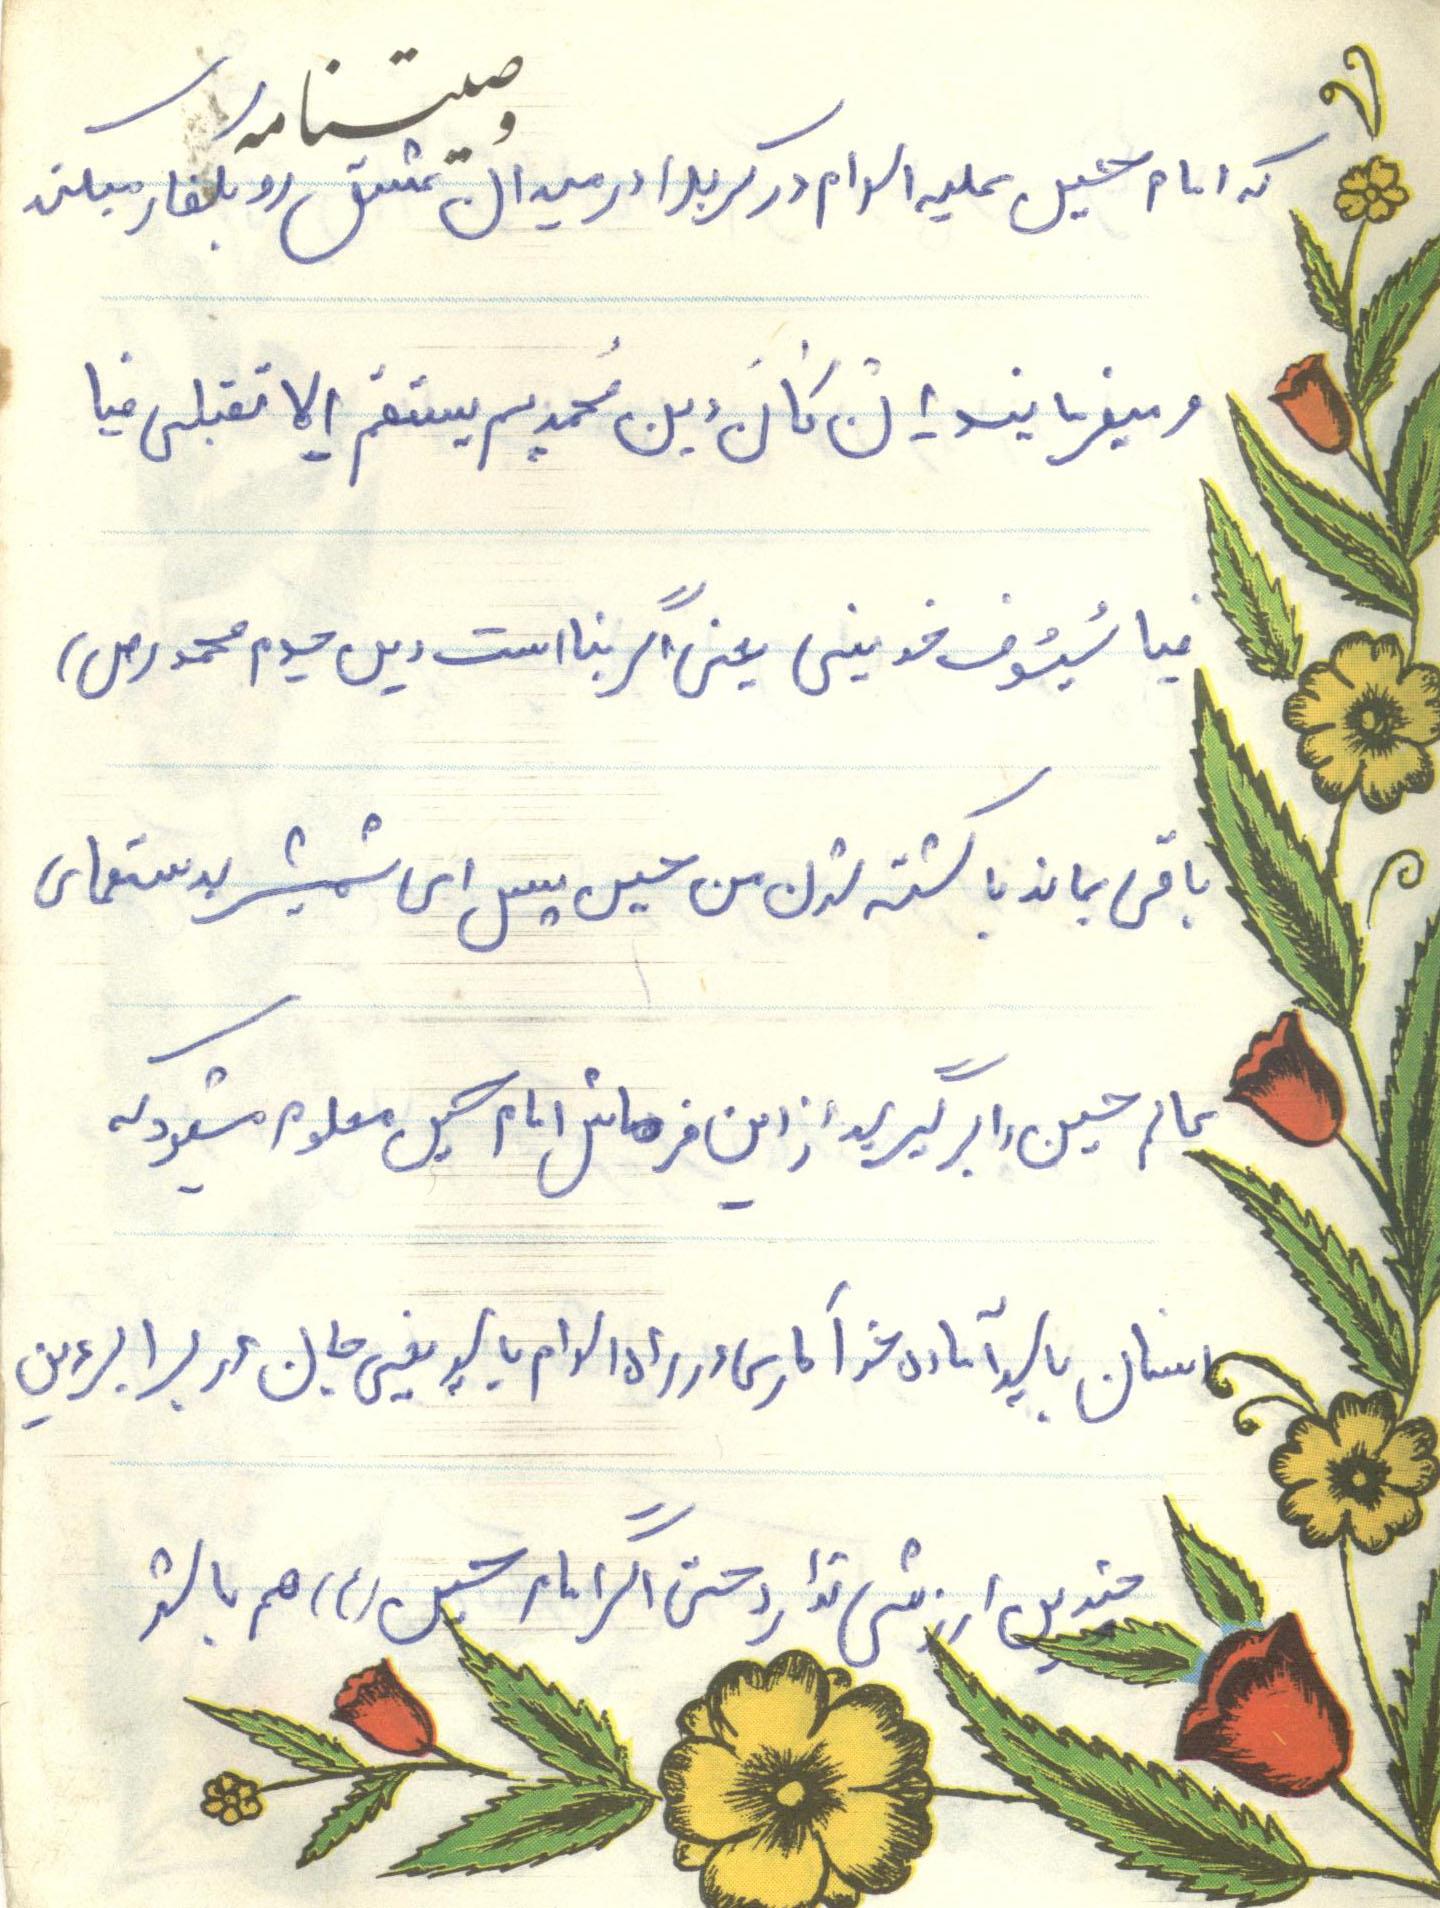 وصیتنامه
که امام حسین علیه السلام در کربلا در میدان عشق رو بکفار میکند
و میفرمایند إن کانَ دین مُحمد لم یستقم إلا تقبلی فیا
فیا سُیُوف خذینی یعنی اگر بنا است دین جدم محمد (ص)
باقی بماند با کشته شدن من حسین پس ای شمشیر بدستهای
عالم حسین را برگیرید از این فرمایش امام حسین معلوم میشود که
انسان باید آماده فداکاری در راه اسلام باید یعنی جان در برابر دین
چندین ارزشی ندارد حتی اگر امام حسین (ع) هم باشد